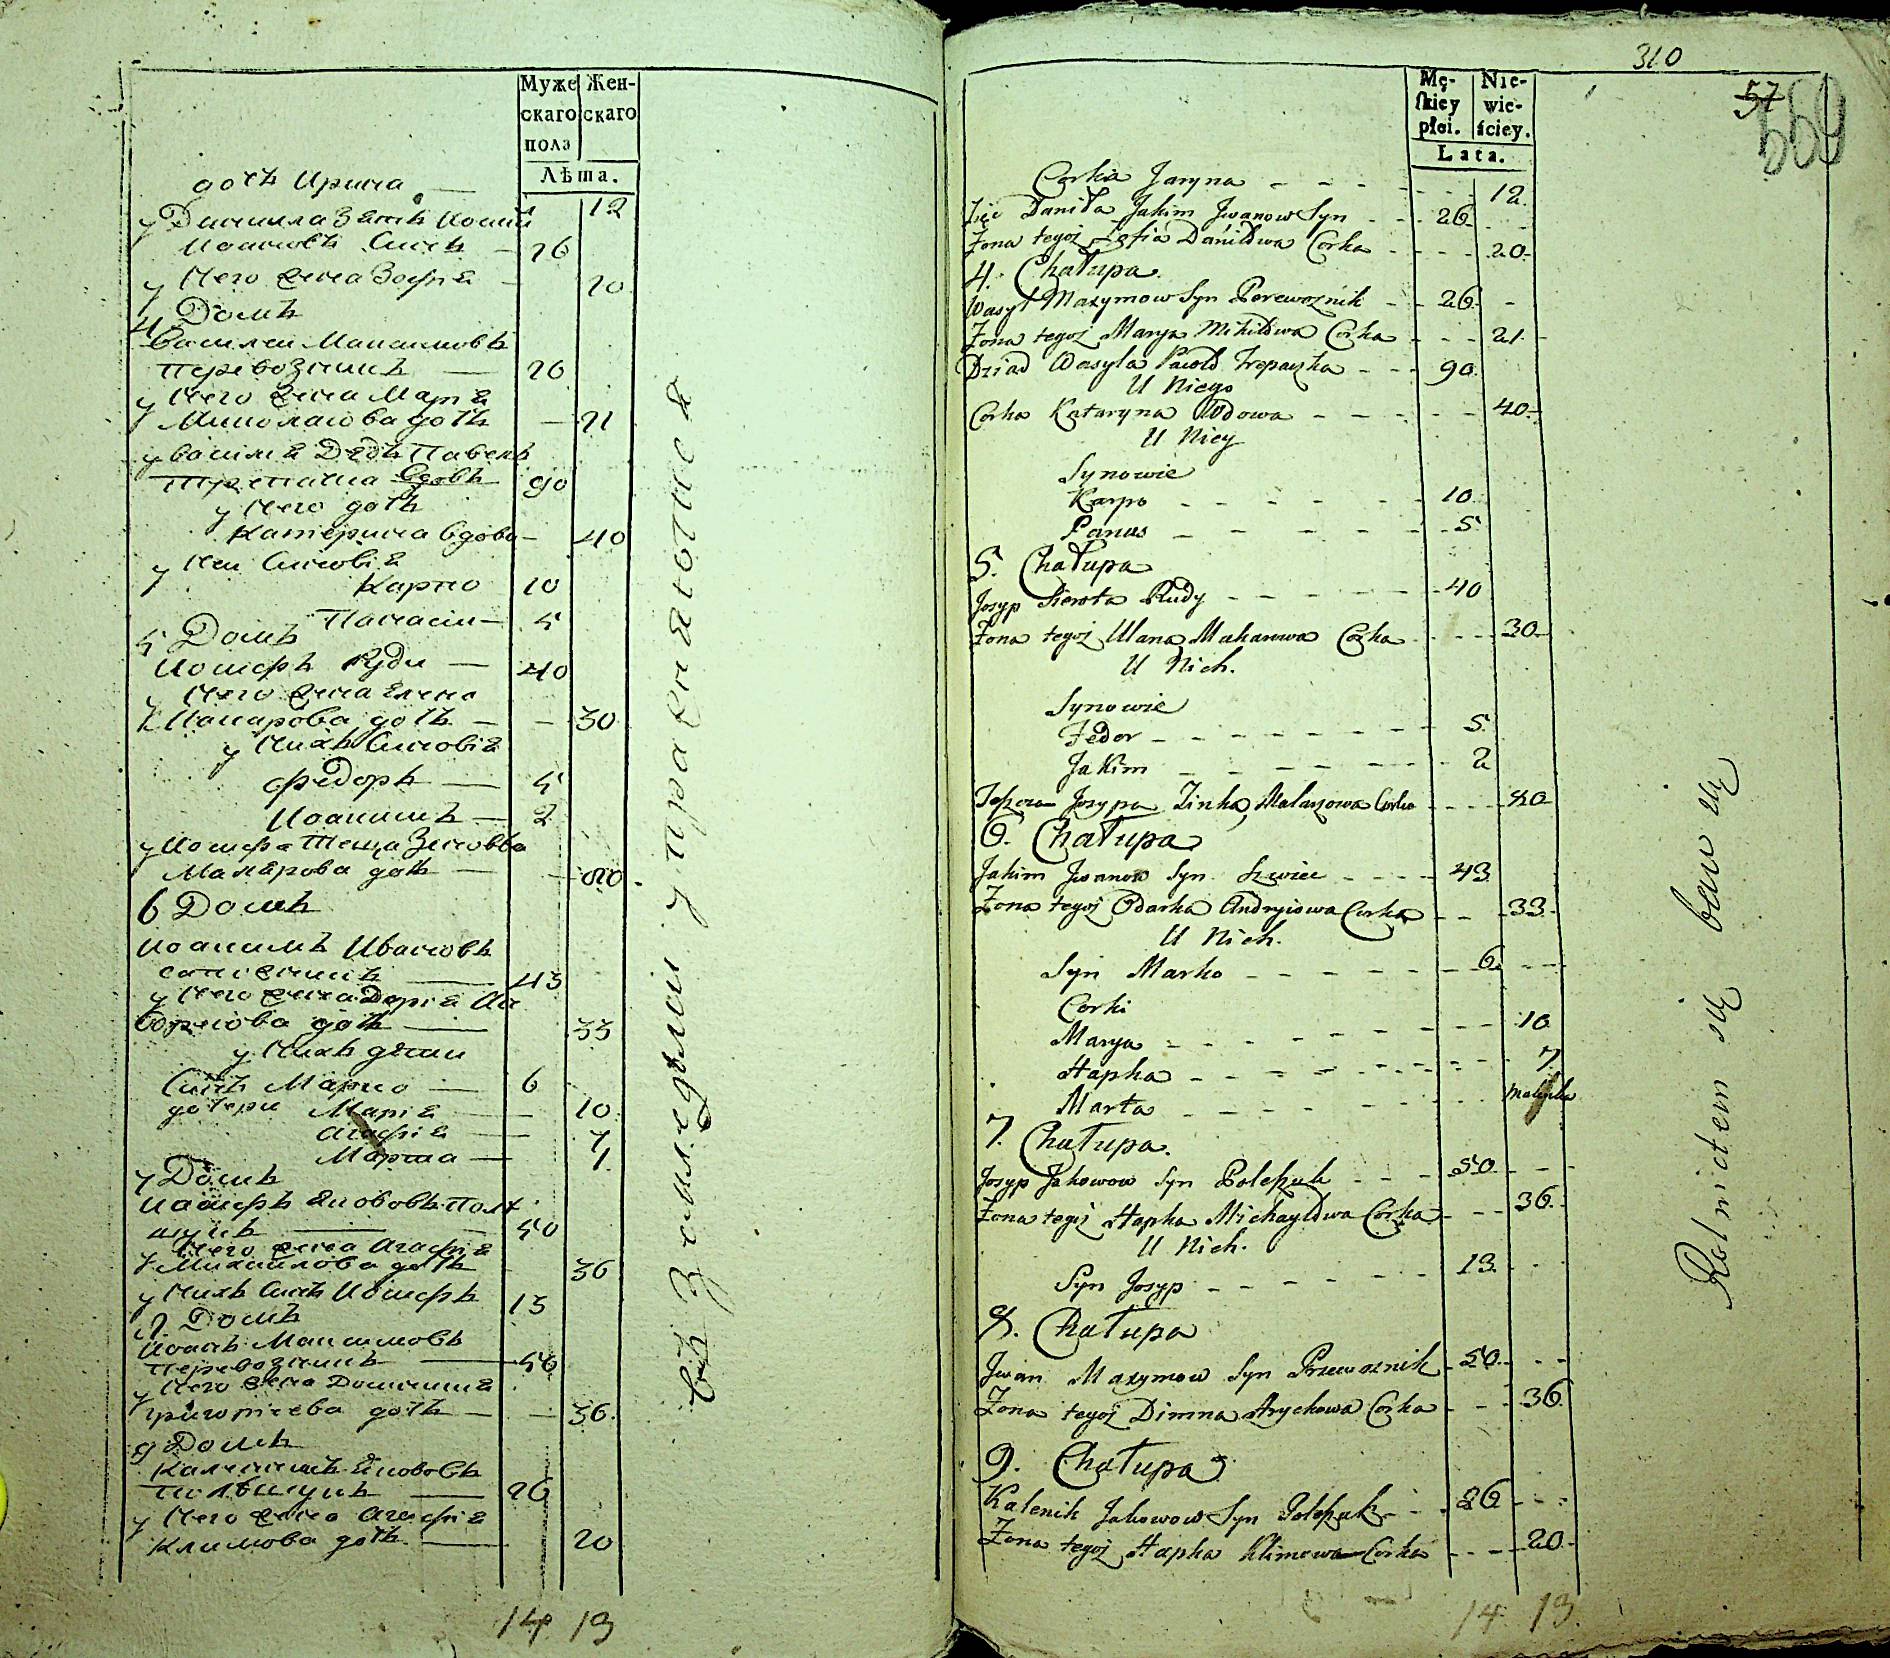 Муже Жен-
скаго скаго
пола
Лѣта.
дочь Ирина — 12
у Даниила Зять Иоаким
Иоаннов Синъ — 26
у Него жена Зофия — 20
4 Домъ
Василий Максимовъ
перевозникъ — 26
у Него жена Мария
Николаева дочь — 21
у Василия Дедъ Павелъ
Трепачка вдовъ 90
у Него дочь
Катерина вдова — 40
у Ней Синовія
Карпо 10
Панасій — 5
5 Домъ
Иосифъ Руди — 40
у Него жена Елена
Макарова дочь — 30
у Нихъ Синовія
Федоръ — 5
Иоакимъ — 2
у Иосифа теща Зиновія
Макарова дочь — 80
6 Домъ
Иоакимъ Ивановъ
сапожникъ — 43
у Него жена Дарія Ан
дреева дочь — 33
у Нихъ дети
Синъ Марко — 6
дочери Марія — 10
Агафія — 7
Марта — 1
7 Домъ
Иосифъ Яковов Поле
щукъ — 50
у Него жена Агафія
Михайлова дочь 36
у Нихъ Синъ Иосифъ 13
8 Домъ
Иоанъ Максимовъ
перевозникъ — 50
у Него жена Домникия
григориева дочь — 36
9 Домъ
Калиникъ Якововъ
Полѣщукъ — 26
у Него жена Агафія
Климова дочь — 20
14 13
въ Земледѣліи упражняются
310
57
559
Mę- Nie-
ſkiey wie-
płci. ściey.
Lata.
Corka Jaryna - - - 12.
Zięć Daniła Jakim Jwanow Syn - - 26.
Żona tegoż Zofia Daniłowa Corka - - - 20.
4. Chałupa.
Wasyl Maxymow Syn Perewoznik - - 26. -
Żona tegoż Marya Mikiłowa Corka - - - 21. -
Dziad Wasyla Pawło Trepaczka - - - 90.
U Niego
Corka Kataryna Wdowa - - - - 40.
U Niey
Synowie
Karpo - - - - - 10.
Panas - - - - - 5.
5. Chałupa
Josyp Sierota Rudy - - - - - 40
Żona tegoż Ulana Makarowa Corka - - - 30.
U Nich.
Synowie
Fedor - - - - - - 5.
Jakim - - - - - 2
Josypa Zinka Corka - - - 80
6. Chałupa
Jakim Jwanow Syn Szwiec - - - - 43.
Żona tegoż Odarka Andryiowa Corka - - - 33.
U Nich.
Syn Marko - - - - - - 6. - -
Corki
Marya - - - - - - - 10
Hapka - - - - - - - 7.
Marta - - - - - - - malinka
7. Chałupa.
Josyp Jakowow Syn Poleszuk - - - 50. - -
Żona tegoż Hapka Michayłowa Corka - - - 36.
U Nich.
Syn Josyp - - - - - - 13. - -
8. Chałupa
Jwan Maxymow Syn Przewoznik - 50. - -
Żona tegoż Dimna Hrychowa Corka - - - 36.
9. Chałupa
Kalenik Jakowow Syn Poleszuk - - 26 - - -
Żona tegoż Hapka Klimowa Corka - - - 20. -
14 13.
Rolnictem się bawią